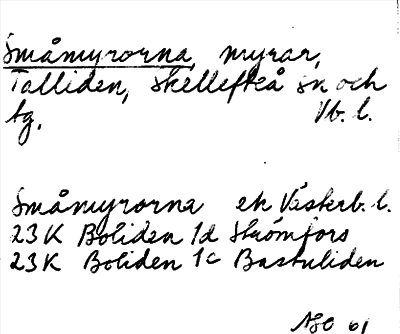 Småmyrorna, myrar,
Talliden, Skellefteå sn och
tg, Vb. l.
Småmyrorna ek Västerb. l.
23K Boliden 1d Strömfors
23K Boliden 1c Bastuliden
61